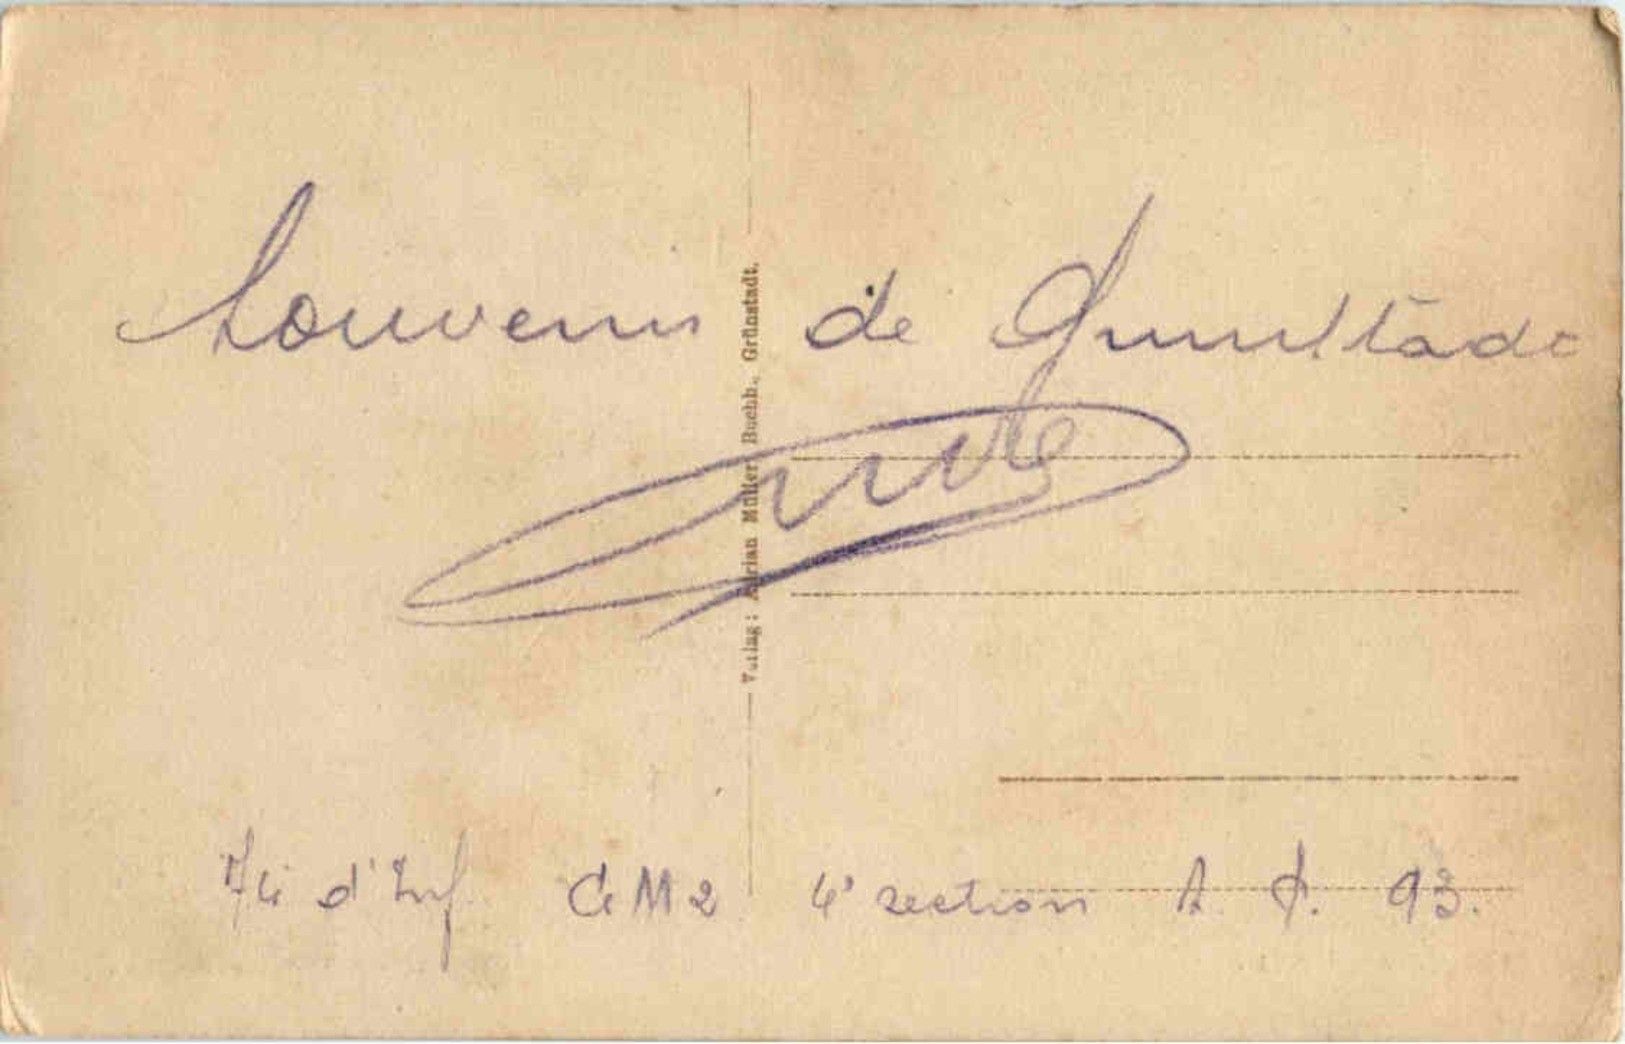 Souvenir de Grunstadt
Verlag: Adrian Müller, Buchh., Grünstadt.
74e d'Inf. Cie M 2 4e section S. P. 93.